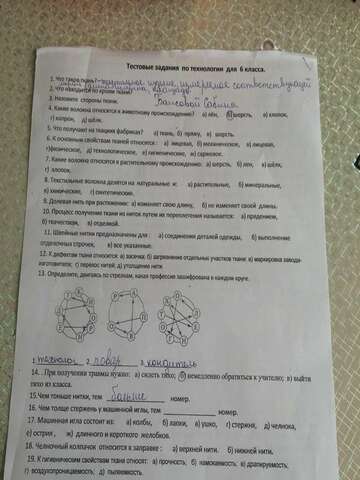 Тестовые задания по технологии для 6 класса.
1. Что такое ткань?
2. Что находится по кромке ткани?
3. Назовите стороны ткани.
4. Какие волокна относятся к животному происхождению? а) лён, б) шерсть, в) хлопок,
г) капрон, д) шёлк.
5. Что получают на ткацких фабриках? а) ткань, б) пряжу, в) шерсть.
6. К основным свойствам тканей относятся: а) лицевая, б) механическое, в) лицевая,
г)физическое, д) технологическое, е) гигиеническое, ж) саржевое.
7. Какие волокна относятся к растительному происхождению: а) шерсть, б) лен, в) шёлк,
г) хлопок.
8. Текстильные волокна делятся на натуральные и: а) растительные, б) минеральные,
в) химические, г) синтетические.
9. Долевая нить при растяжении: а) изменяет свою длину, б) не изменяет своей длины.
10. Процесс получения ткани из ниток путем их переплетения называется: а) прядением,
б) ткачеством, в) отделкой.
11. Швейные нитки предназначены для: а) соединения деталей одежды, б) выполнение
отделочных строчек, в) все указанные.
12. К дефектам ткани относятся: а) засечка; б) загрязнение отдельных участков ткани; в) маркировка завода-
изготовителя; г) перекос нитей; д) утолщение нити
13. Определите, двигаясь по стрелкам, какая профессия зашифрована в каждом круге.
1 технолог 2 повар 3 кондитер
14. При получении травмы нужно: а) сидеть тихо; б) немедленно обратиться к учителю; в) выйти
тихо из класса.
15.Чем тоньше нитки, тем больше номер.
16. Чем толще стержень у машинной иглы, тем номер.
17. Машинная игла состоит из: а) колбы, б) лыски, в) ушко, г) стержня, д) челнока,
е) острия, ж) длинного и короткого желобков.
18. Челночный колпачок относится к заправке: а) верхней нити. б) нижней нити.
19. К гигиеническим свойствам ткани относят: а) прочность; б) намокаемость; в) драпируемость,
г) воздухопроницаемость; д) пылеемкость.